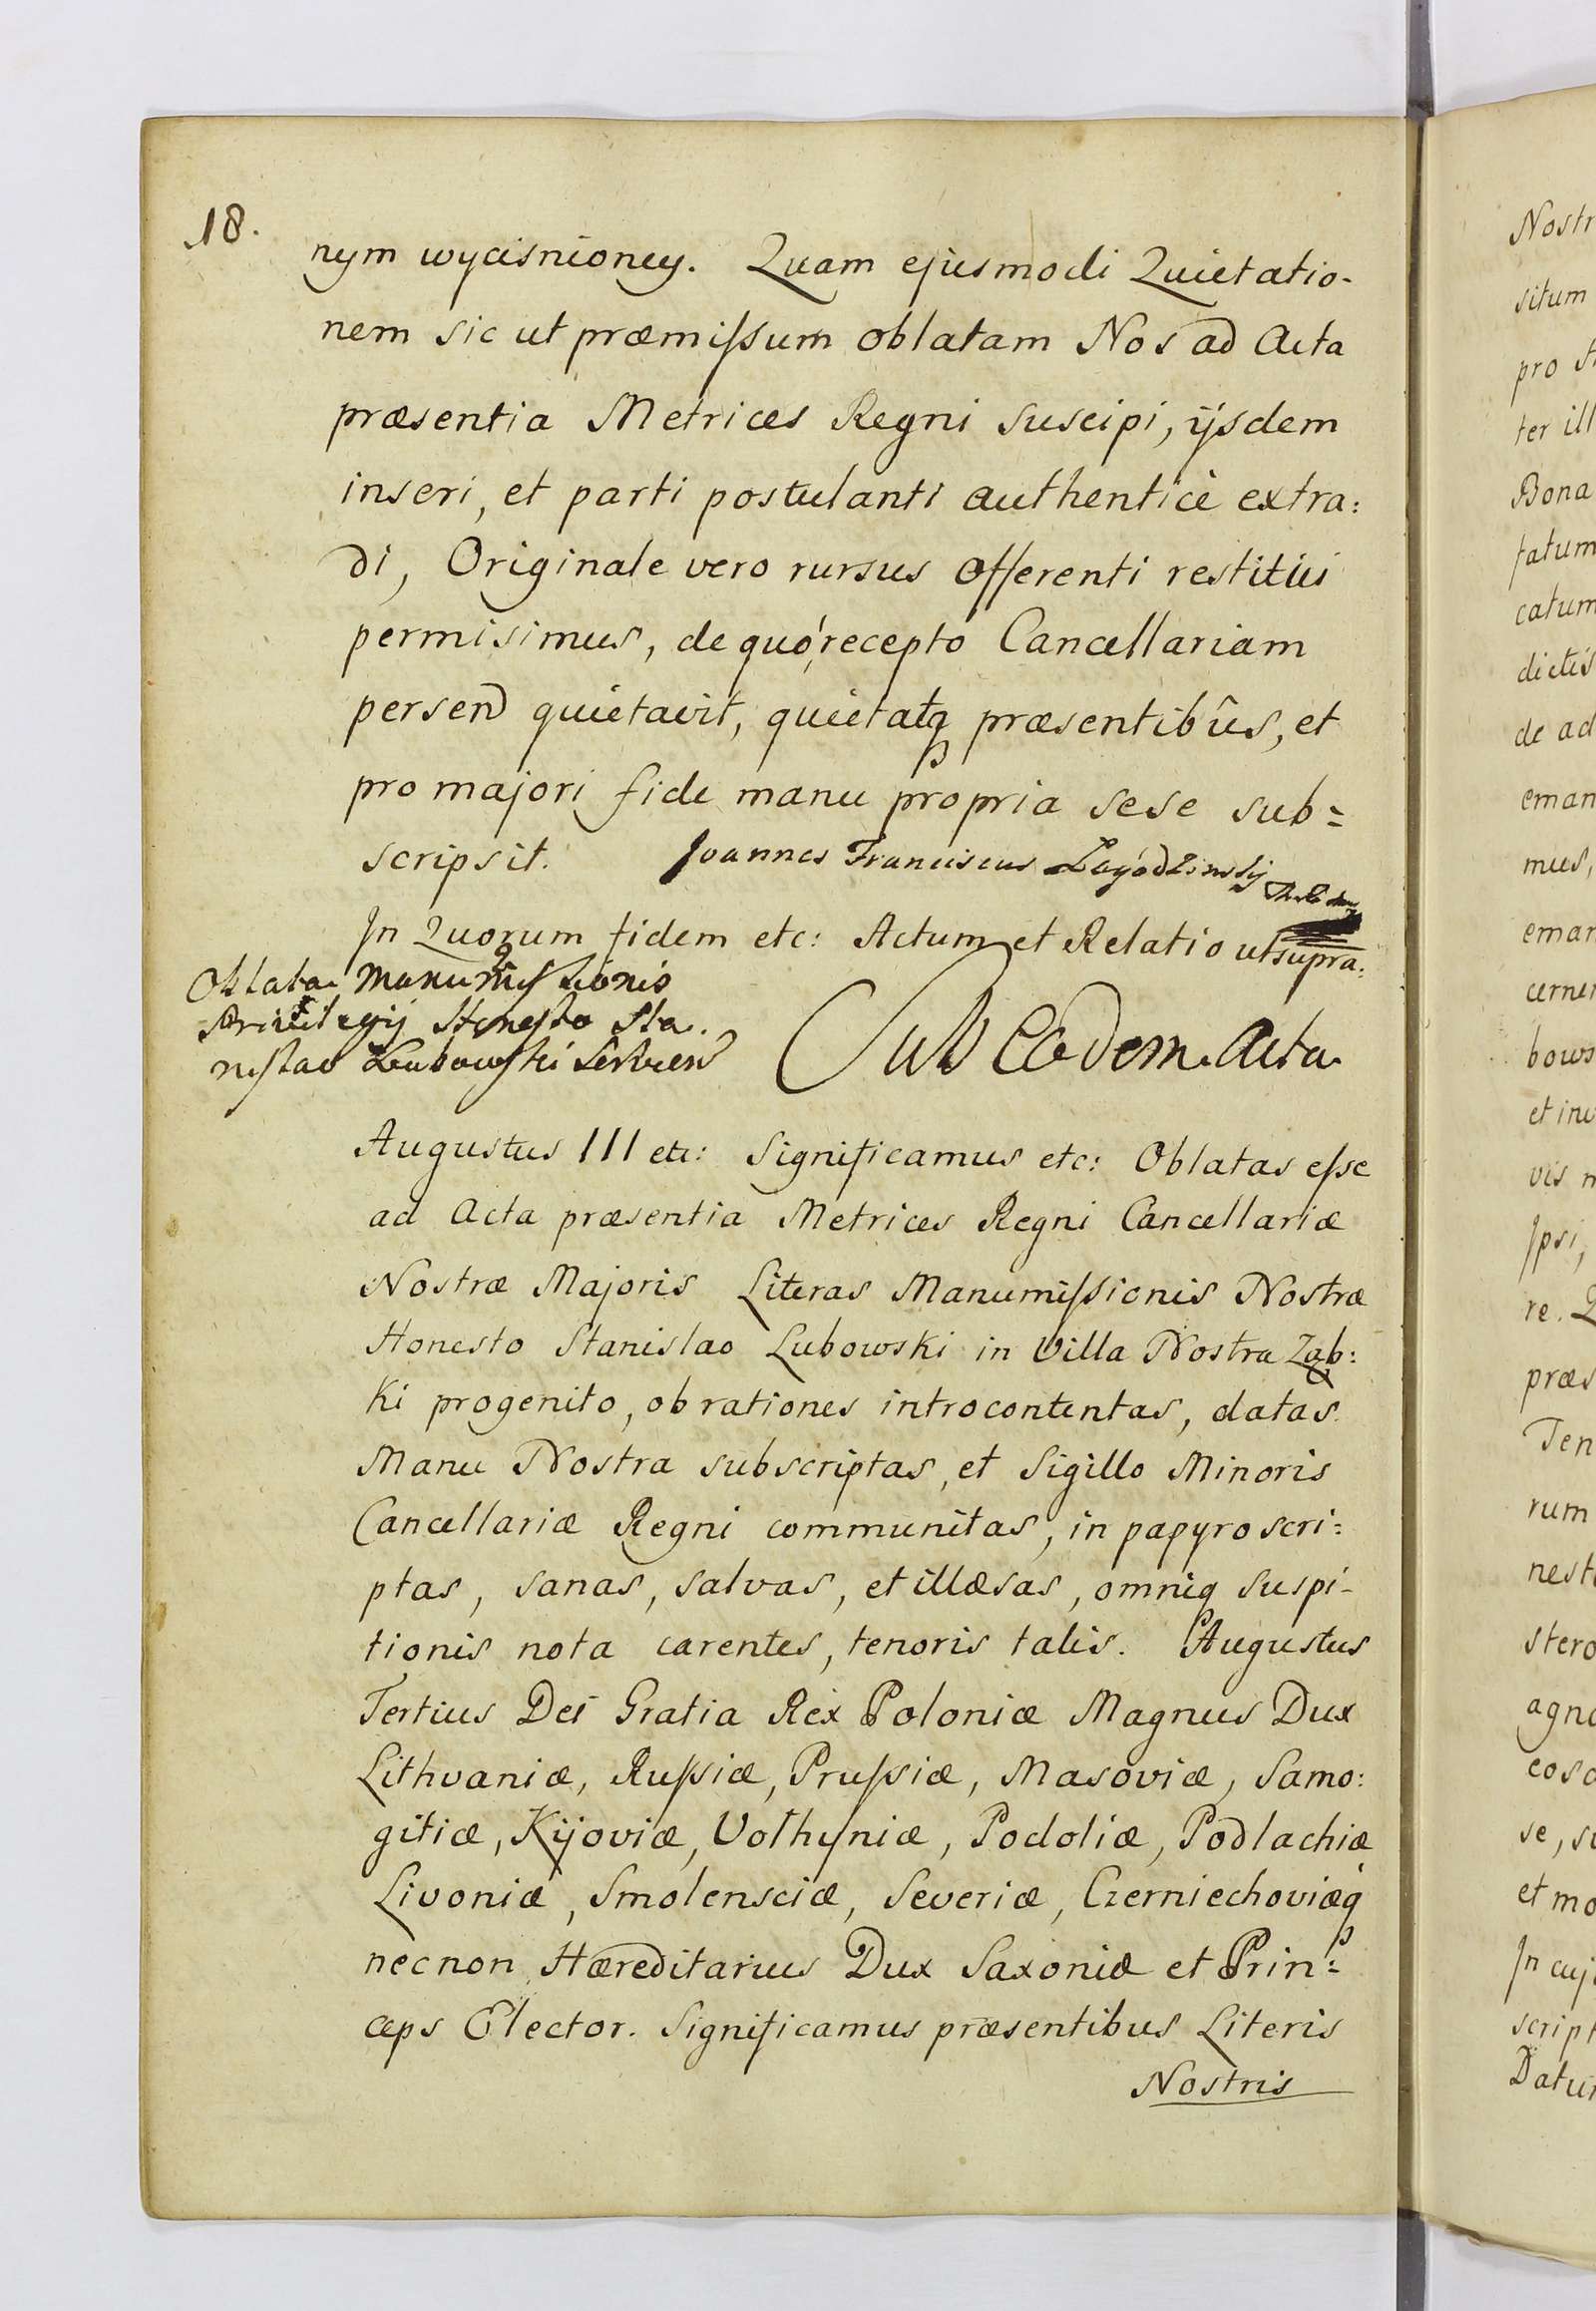 18.
nym wycisnioney. Quam ejusmodi Quietatio-
nem sic ut præmissum oblatam Nos ad Acta
præsentia Metrices Regni suscipi, ijsdem
inseri, et parti postulanti authenticè extra:
di, Originale vero rursus offerenti restitui
permisimus, de quó, recepto Cancellariam
persend quietavit, quietatq præsentibûs, et
pro majori fide manu propria sese sub=
scripsit. Joannes Franciscus
In Quorum fidem etc: Actum et Relatio ut supra.
Oblata Manumissionis
Privilegij Honesto Sta.
nislao Lubowski Servien
Sub Eadem Acta
Augustus III etc: Significamus etc: Oblatas esse
ad Acta præsentia Metrices Regni Cancellariæ
Nostræ Majoris Literas Manumissionis Nostræ
Honesto Stanislao Lubowski in Villa Nostra Ząb:
ki progenito, ob rationes introcontentas, datas.
Manu Nostra subscriptas, et Sigillo Minoris
Cancellariæ Regni communitas, in papyro scri:
ptas, sanas, salvas, et illæsas, omniq suspi-
tionis nota carentes, tenoris talis. Augustus
Tertius Dei Gratia Rex Poloniæ Magnus Dux
Lithvaniæ, Russiæ, Prussiæ, Masoviæ, Samo:
gitiæ, Kijoviæ, Volhyniæ, Podoliæ, Podlachiæ
Livoniæ, Smolensciæ, Severiæ, Czerniechoviæq
necnon Hæreditarius Dux Saxoniæ et Prin=
ceps Elector. Significamus præsentibus Literis
Nostris
Nostr
situm
pro
ter ill
Bona
tatum
catum
dictis
de ad
eman
mus,
eman
cerner
bows
et inv
vis n
Ipsi,
re. Q
præs
Ten
rum
nest
stero
agno
eos
se, su
et mo
In cuj
script
Datu